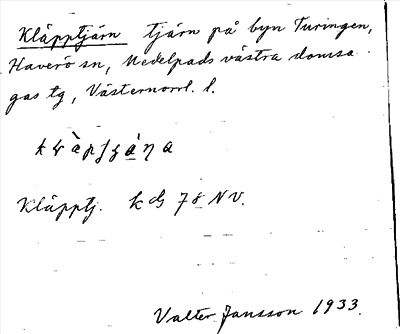 Kläpptjärn tjärn på byn Turingen,
Haverö sn, Medelpads västra domsa
gas tg, Västernorrl. l.
Kläpptj. k bl 78 NV.
Valter Jansson 1933.